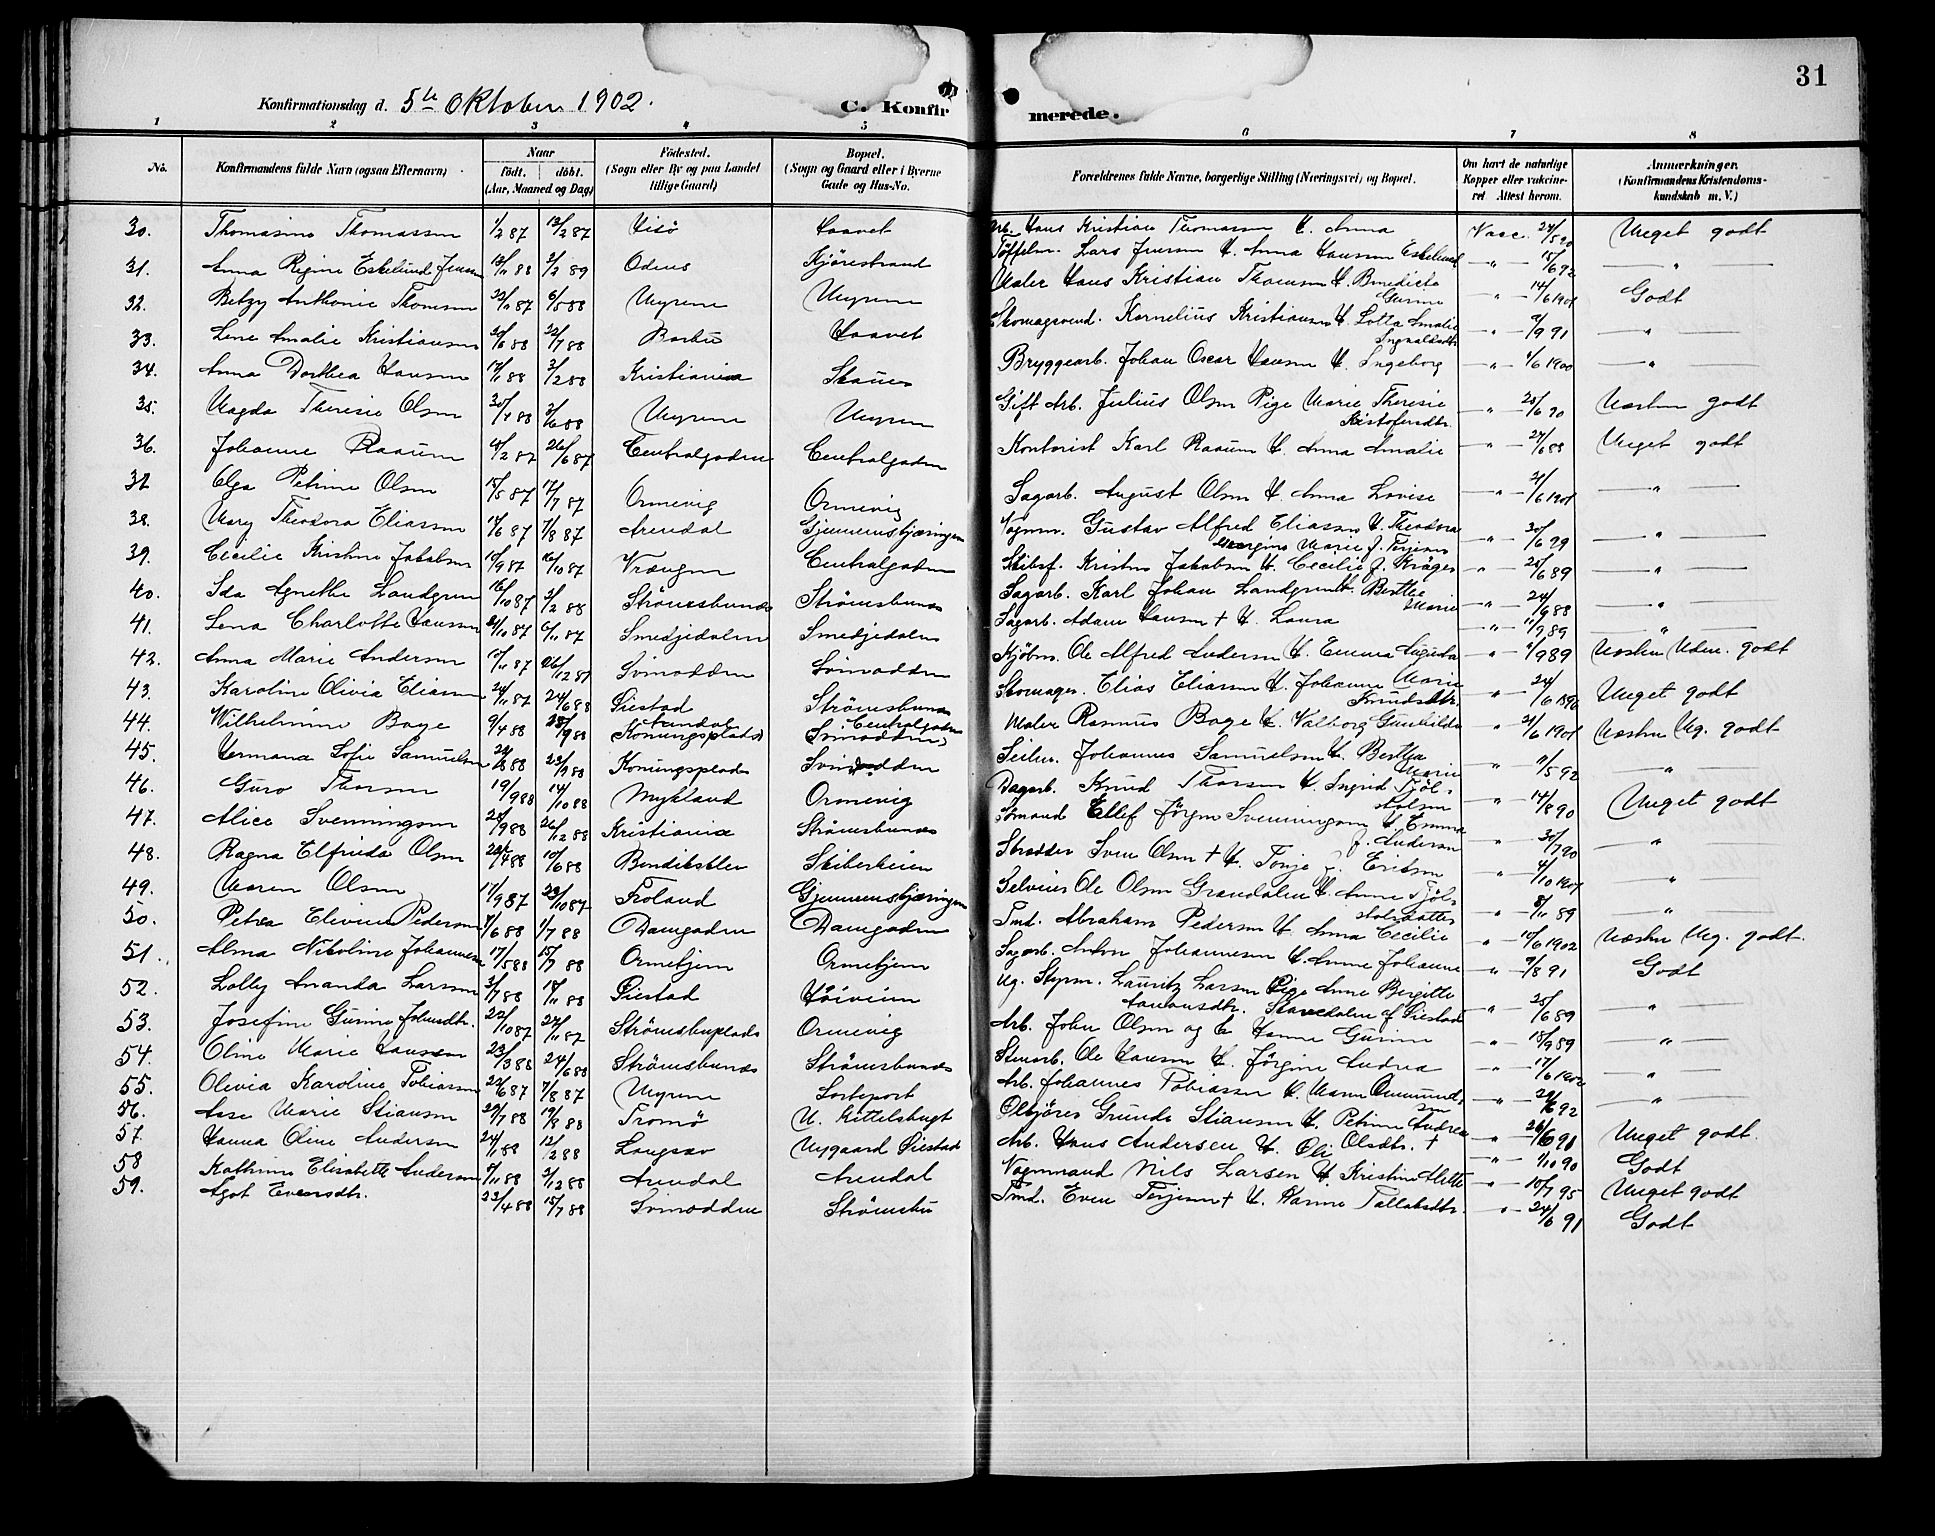 31
Konfirmationsdag d. 5te Oktober 1902.
C. Konfirmerede.
1 2 3 4 5 6 7 8
No. Konfirmandens fulde Navn (ogsaa Efternavn). Naar födt. döbt. (Aar, Maaned og Dag) Födested. (Sogn eller By og paa Landet tillige Gaard) Bopæl. (Sogn og Gaard eller i Byerne Gade og Hus-No. Forældrenes fulde Navne, borgerlige Stilling (Næringsvei) og Bopæl. Om havt de naturlige Kopper eller vaksineret. Attest herom. Anmærkninger. (Konfirmandens Kristendomskundskab m. V.)
30. Thomasine Thomassen 1/2 87 13/2 87 Hisö Haavet Arb. Hans Kristian Thomassen H. Anna Vacc. 24/5 90 Meget godt
31. Anna Regine Eskelund Jensen 3/2 89 Odens Kjörestrand Töffelm. Lars Jensen H. Anna Hansen Eskelund " 15/6 92 "
32. Betzy Anthonie Thomsen 22/11 87 6/5 88 Myrene Myrene Maler Hans Kristian Thomsen H. Benedicte Gurine " 14/6 1901 Godt
33. Lene Amalie Kristiansen 20/6 88 22/7 88 Barbu Haavet Skomagsvend. Kornelius Kristiansen H. Lotta Amalie Ingvaldsdtr. " 9/9 91 "
34. Anna Dorthea Hansen 3/2 88 Kristiania Skauen Bryggearb. Johan Oscar Hansen H. Ingeborg " 1/6 1900 "
35. Magda Theresie Olsen 30/4 88 3/6 88 Myrene Myren Gift Arb. Julius Olsen Pige Marie Theresie Kristofersdtr. " 20/6 90 Næsten godt
36. Johanne Raaum 4/2 87 26/6 87 Centralgaden Centralgaden Kontorist Karl Raaum H. Anna Amalie " 27/6 88 Meget godt
37. Olga Petrine Olsen 15/5 87 17/7 87 Ormevig Ormevig Sagarb. August Olsen H. Anna Lovise " 21/6 1901 "
38. Mary Theodora Eliassen 14/6 87 7/8 87 Arendal Gjennemskjæringen Vognm. Gustav Alfred Eliassen H. Theodora Marie f. Terjesen " 30/6 99 "
39. Cecilie Kristine Jakobsen 10/9 87 16/10 87 Vrængen Centralgaden Skibsf. Kristen Jakobsen H. Cecilie f. Kröger " 25/6 89 "
40. Ida Agnethe Landgren 16/10 87 5/2 88 Strömsbunes Strömsbunes Sagarb. Karl Johan Landgren H. Berthe Marie " 24/9 88 "
41. Lena Charlotte Hansen 21/10 87 6/11 87 Smedjedalen Smedjedalen Sagarb. Adam Hansen + H. Laura " 11/9 89 "
42. Anna Marie Andersen 10/11 87 26/12 87 Svinodden Svinodden Kjöbm. Ole Alfred Andersen H. Emma Augusta " 1/9 89 Næsten Udm. godt
43. Karoline Olivia Eliassen 24/11 87 24/6 88 Öiestad Strömsbunes Skomager. Elias Eliassen H. Johanne Marie Knudsdtr. " 24/6 1896 Meget godt
44. Wilhelmine Boye 9/4 88 23/9 88 Arendal Centralgaden Maler Rasmus Boye H. Valborg Gunhilda " 21/6 1901 Næsten Mg. godt
45. Hermana Sofie Samuelsen 23/9 88 Kongsplads Svinodden Seilm. Johannes Samuelsen H. Berthe Marie " 11/5 92 "
46. Guro Thorsen 19/9 88 14/10 88 Mykland Ormevig Dagarb. Knud Thorsen H. Ingrid Tjöl- " 14/8 90 Meget godt
47. Alice Svenningsen 25/9 88 26/12 88 Kristiania Strömsbunes Sömand Ellef Jörgen Svenningsen H. Emma f. Andersen " 30/7 90 "
48. Ragna Elfrida Olsen 10/6 88 Bendiksklev Skiberheien Skrædder Sven Olsen + H. Tonje f. Eriksen " 4/10 1901 "
49. Maren Olsen 17/9 87 23/10 87 Froland Gjennemskjæringen Selveier Ole Olsen Grændalen H. Anne Tjöl- stolsdatter " 8/11 89 "
50. Petra Elevine Pedersen 4/6 88 1/7 88 Damgaden Damgaden Tmd. Abraham Pedersen H. Anna Cecilie " 10/6 1902 Næsten Mg. godt.
51. Alma Nikoline Johannesen 17/5 88 15/7 88 Ormekjern Ormekjern Sagarb. Anton Johannesen H. Anne Johanne " 9/8 91 Godt
52. Lolly Amanda Larsen 3/7 88 18/11 88 Öiestad Höiveien Ug. Styrm. Lauritz Larsen Pige Anne Bergitte Aanonsdtr. Skaredalen af Öiestad " 25/6 89 "
53. Josefine Gurine Johnsdtr. 22/10 87 27/11 87 Strömsbuplads Ormevig Arb. John Olsen og H. Hanne Gurine " 18/9 89 "
54. Oline Marie Hansen 23/3 88 24/6 88 Strömsbunes Strömsbunes Stenarb. Ole Hansen H. Jörgine Andrea " 17/6 1902 "
55. Olivia Karoline Tobiassen 22/6 87 7/8 87 Myrene Sorteport Arb. Johannes Tobiassen H. Maren Omunds- sen " 92 "
56. Aase Marie Stiansen 29/7 88 19/8 88 Tromö N. Kittelsbugt Oliejöres Grunde Stiansen H. Petrine Andrea " Meget godt.
57. Hanna Oline Andersen 24/1 88 12/2 88 Langsæv Nygaard Öiestad Arb. Hans Andersen H. Oli Olsdtr. + " 1/10 90 Godt
58 Kathrine Elisabeth Andersen 2/12 88 Arendal Arendal Vognmand Nils Larsen H. Kristine Mette " 10/7 95 Meget godt
59. Agot Evensdtr. 22/4 88 15/7 88 Svinodden Strömsbu Tmd. Even Terjesen + H. Hanne Tallaksdtr. " 24/6 91 Godt